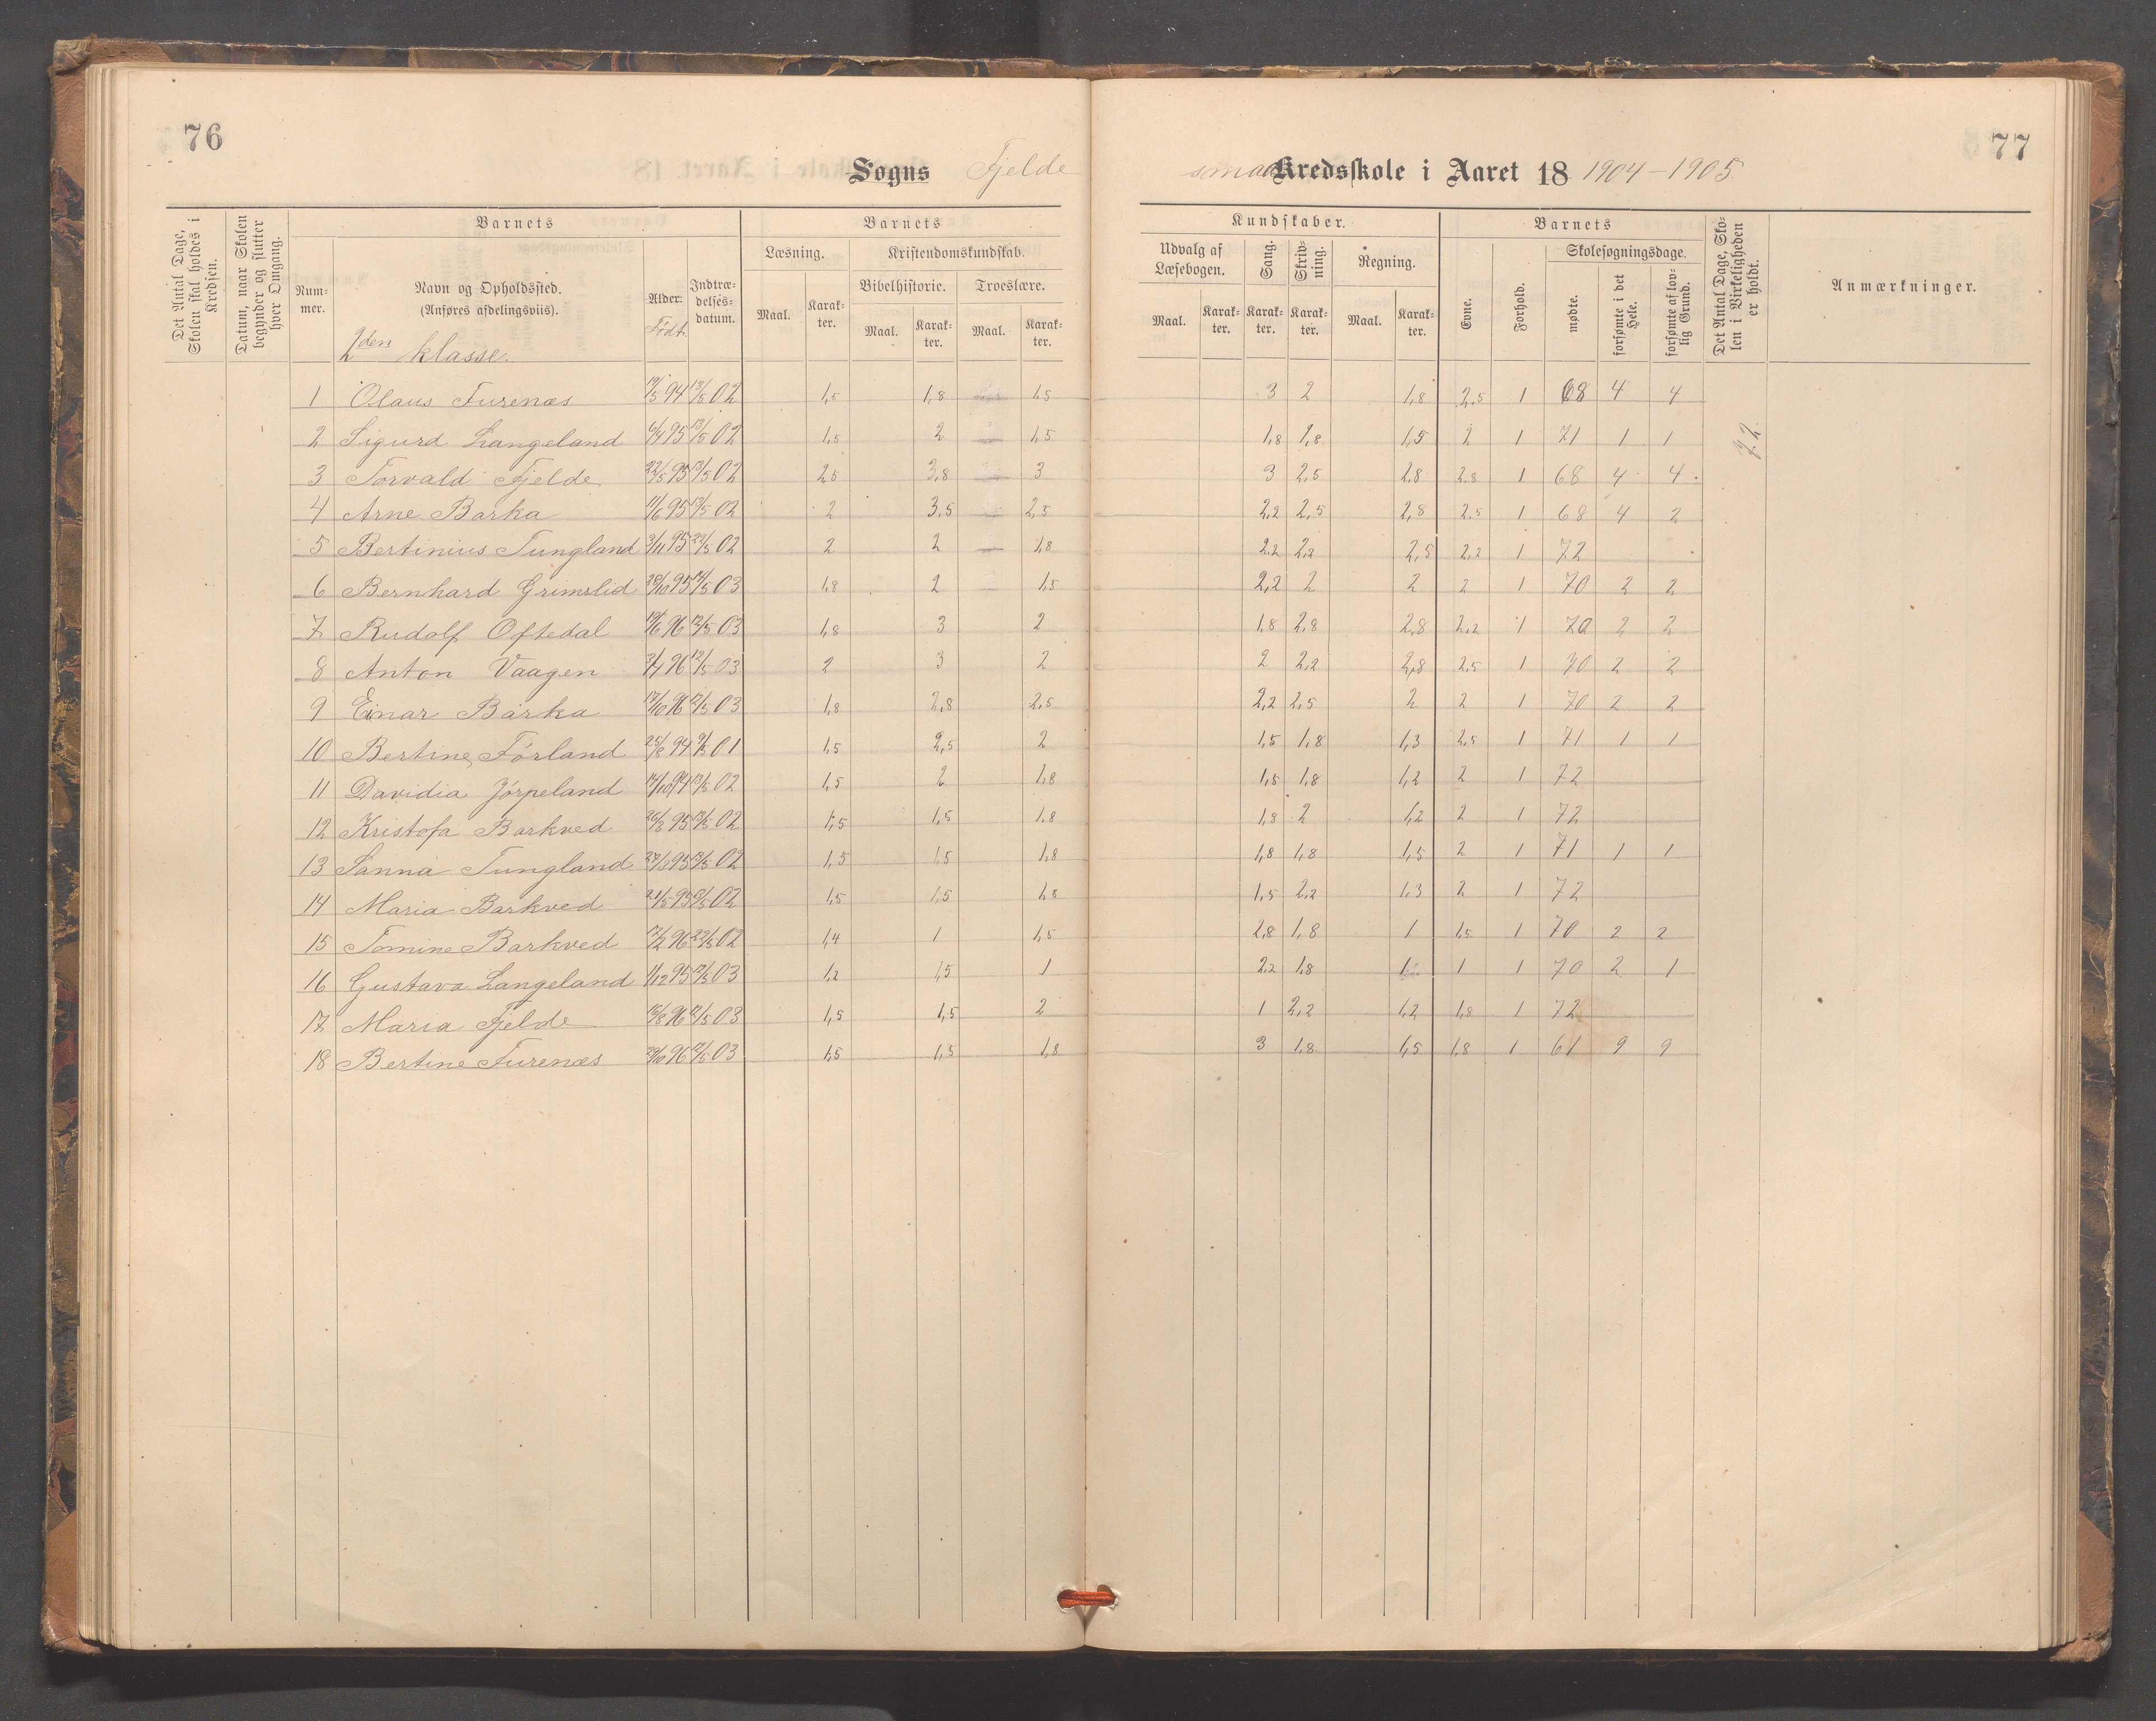 76
Sogns Fjelde
Det Antal Dage, Skolen skal holdes i Kredsen.
Datum, naar Skolen begynder og slutter hver Omgang.
Barnets
Nummer.
Navn og Opholdssted.
(Anføres afdelingsviis).
2den klasse.
Alder.
Født.
Indtrædelses-datum.
Barnets
Læsning.
Maal. Karakter.
Kristendomskundskab.
Bibelhistorie. Troeslære.
Maal. Karakter. Maal. Karakter.
77
smaa Kredsskole i Aaret 18 1904-1905
Kundskaber.
Udvalg af Læsebogen.
Maal. Karakter.
Sang.
Karakter.
Skrivning.
Karakter.
Regning.
Maal. Karakter.
Barnets
Evne.
Forhold.
Skolesøgningsdage.
mødte.
forsømte i det Hele.
forsømte af lovlig Grund.
Det Antal Dage, Skolen i Virkeligheden er holdt.
Anmærkninger.
72
1 Olaus Furenæs 19/5 94 13/5 02 1,5 1,8 1,5 3 2 1,8 2,5 1 68 4 4
2 Sigurd Langeland 6/4 95 13/5 02 1,5 2 1,5 1,8 1,8 1,5 2 1 71 1 1
3 Torvald Fjelde 22/5 95 13/5 02 2,5 3,8 3 3 2,5 2,8 2,8 1 68 4 4
4 Arne Barka 11/6 95 13/5 02 2 3,5 2,5 2,2 2,5 2,8 2,5 1 68 4 2
5 Bertinius Tungland 3/11 95 22/5 02 2 2 1,8 2,2 2,2 2,5 2,2 1 72
6 Bernhard Grimslid 28/10 95 12/5 03 1,8 2 1,5 2,2 2 2 2 1 70 2 2
7 Rudolf Oftedal 19/6 96 12/5 03 1,8 3 2 1,8 2,8 2,8 2,2 1 70 2 2
8 Anton Vaagen 3/7 96 12/5 03 2 3 2 2 2,2 2,8 2,5 1 70 2 2
9 Einar Barka 17/10 96 12/5 03 1,8 2,8 2,5 2,2 2,5 2 2 1 70 2 2
10 Bertine Førland 25/8 94 9/5 01 1,5 2,5 2 1,5 1,8 1,3 2,5 1 71 1 1
11 Davidia Jørpeland 17/10 94 13/5 02 1,5 2 1,8 1,5 1,8 1,2 2 1 72
12 Kristofa Barkved 26/3 95 13/5 02 1,5 1,5 1,8 1,8 2 1,2 2 1 72
13 Sanna Tungland 95 13/5 02 1,5 1,5 1,8 1,8 1,8 1,5 2 1 71 1 1
14 Maria Barkved 21/5 95 13/5 02 1,5 1,5 1,8 1,5 2,2 1,3 2 1 72
15 Tomine Barkved 17/2 96 22/5 02 1,4 1 1,5 2,8 1,8 1 1,5 1 70 2 2
16 Gustava Langeland 1/12 95 12/5 03 1,2 1,5 1 2,2 1,8 1 1 70 2 1
17 Maria Fjelde 16/8 96 12/5 03 1,5 1,5 2 1 2,2 1,2 1,8 1 72
18 Bertine Furenæs 29/10 96 12/5 03 1,5 1,5 1,8 3 1,8 1,5 1,8 1 61 9 9